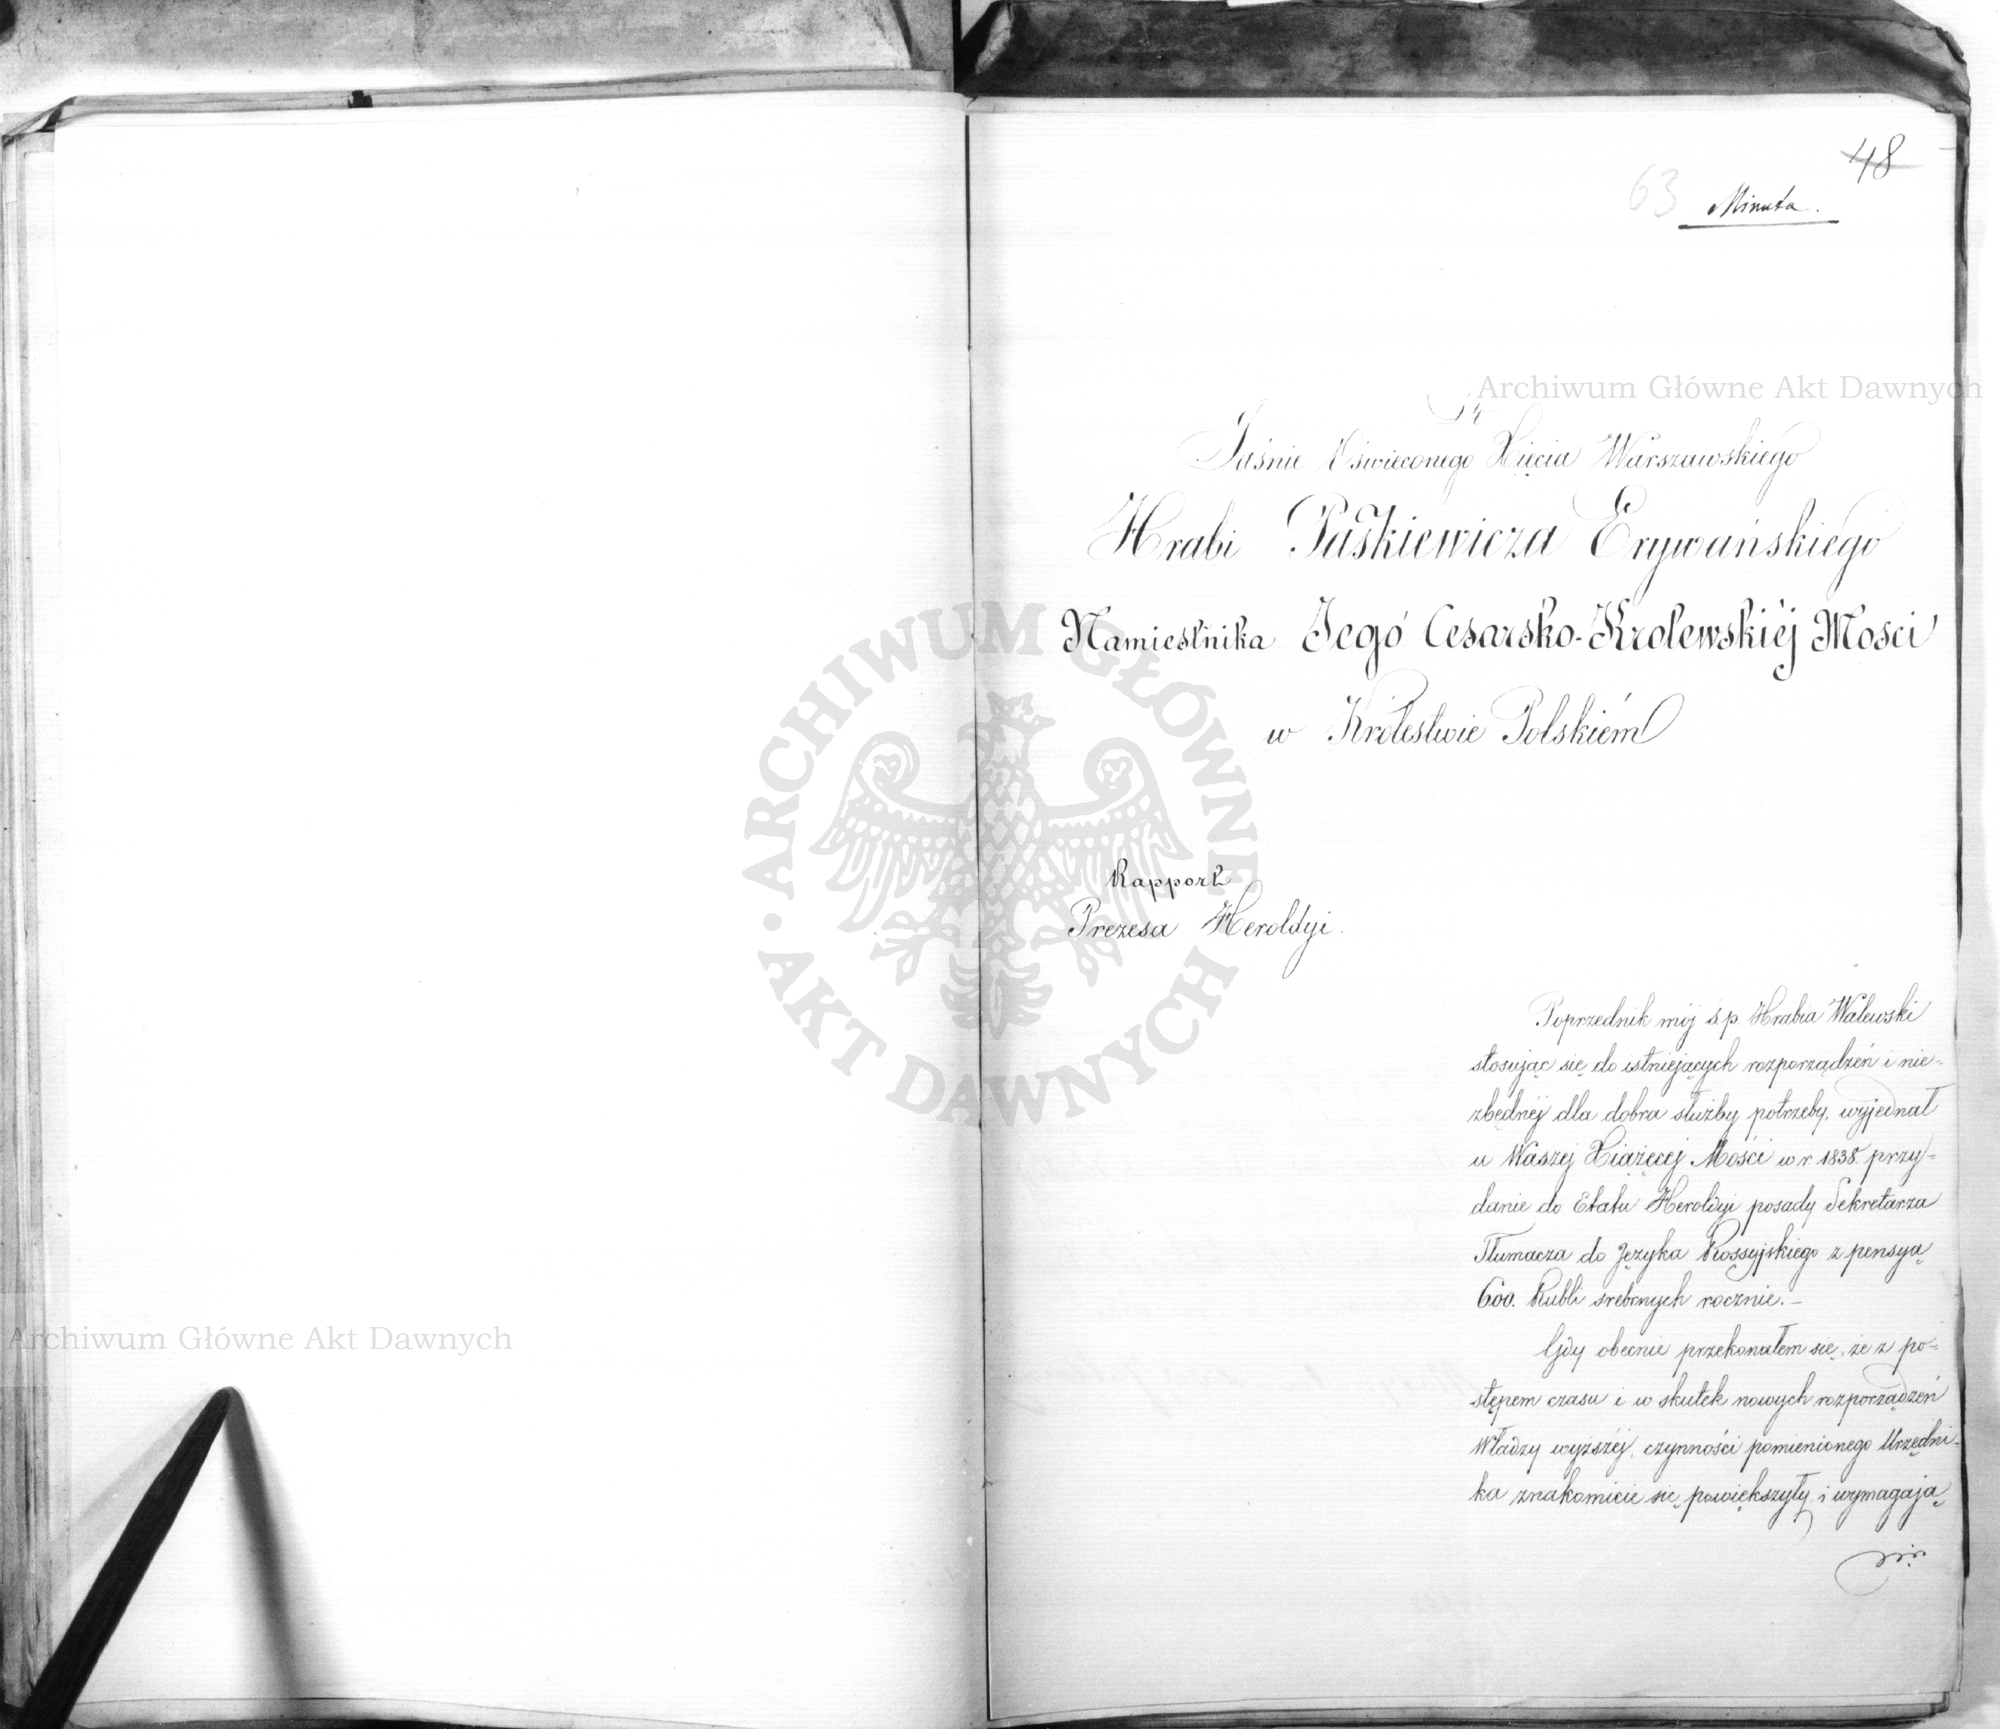 48
63
Minuta.
Archiwum Główne Akt Dawnych
Do
Jaśnie Oświeconego Xięcia Warszawskiego
Hrabi Paśkiewicza Erywańskiego
Namiestnika Jego Cesarsko-Krolewskiéj Mości
w Królestwie Polskiém
ARCHIWUM GŁÓWNE AKT DAWNYCH
Rapport
Prezesa Heroldyi.
Poprzednik mój ś.p. Hrabia Walewski
stosując się do istniejących rozporządzeń i nie=
zbędnéj dla dobra służby potrzeby, wyjednał
u Waszej Xiążęcej Mości w r. 1838. przy=
danie do Etatu Heroldyi posady Sekretarza
Tłumacza do Języka Rossyjskiego z pensyą
600. Rubli srebrnych rocznie.—
Gdy obecnie przekonałem się, że z po=
stępem czasu i w skutek nowych rozporządzeń
Władzy wyższéj, czynności pomienionego Urzędni=
ka znakomicie się powiększyły i wymagają
Archiwum Główne Akt Dawnych